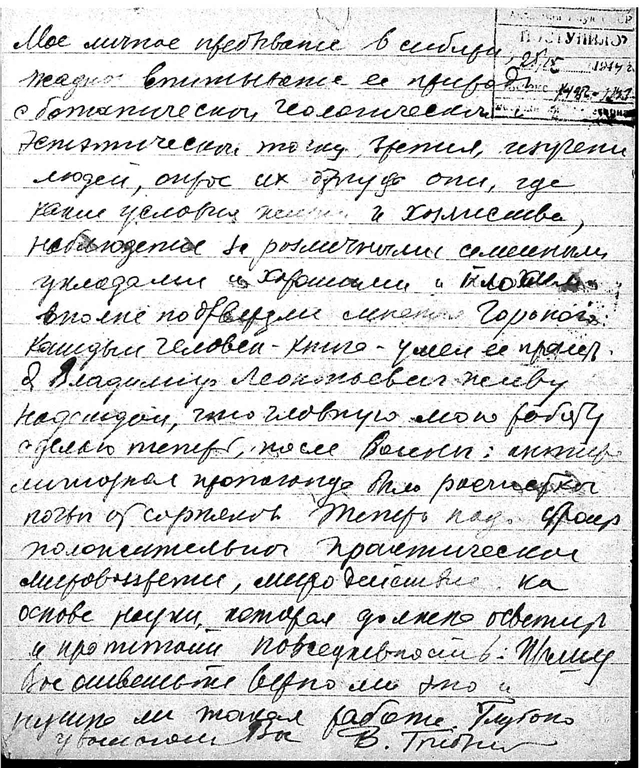 ПОСТУПИЛО
Мое личное пребывание в Сибири,
жадное впитывание ее природы
с ботанической геологической и
эстетической точки зрения, изучение
людей, опрос их откуда они, где
какие условия жизни и хозяйства,
наблюдение за различными семейными
укладами и хорошими и плохими
вполне подтвердили мнение Горького:
каждый человек - книга - умей ее прочер.
Я Владимир Леонтьевич живу
надеждой, что главную мою работу
сделаю теперь, после войны:
пропаганда была расчистка
почвы от сорняков. Теперь надо
положительное практическое
мировоззрение, миродействие на
основе науки, которая должна осветить
и пропитать повседневность. Прошу
Вас ответьте верно ли это и
нужна ли такая работа. Глубоко
уважающий Вас В.